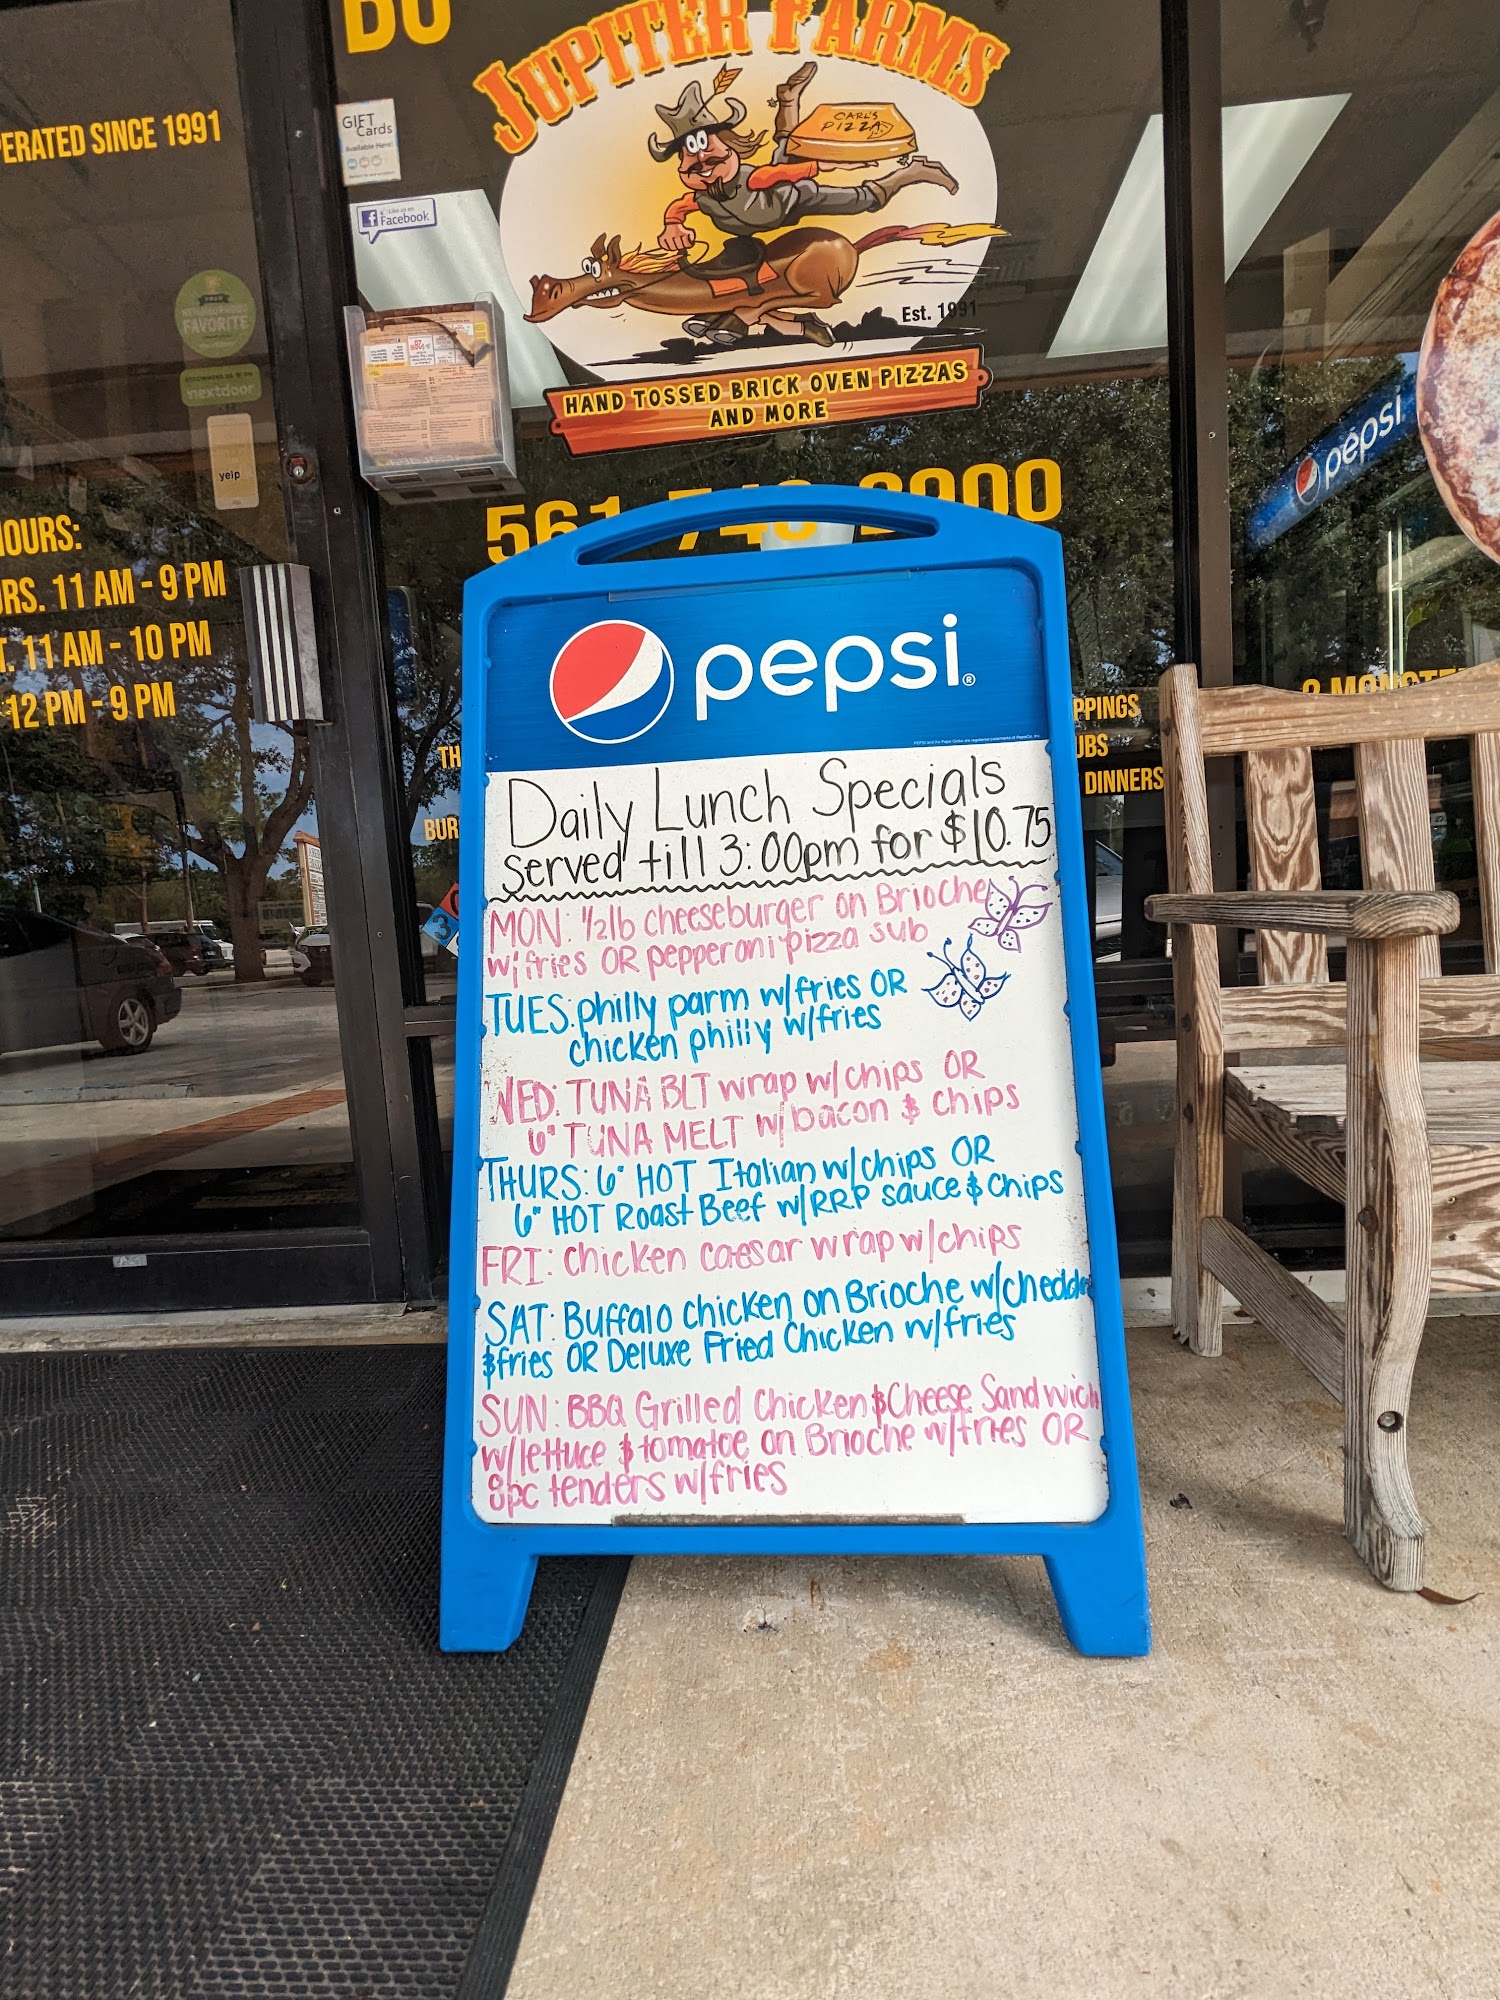 JUPITER FARMS
CARL'S
PIZZA
Est. 1991
HAND TOSSED BRICK OVEN PIZZAS
AND MORE
ERATED SINCE 1991
GIFT
Cards
Available Here!
Like us on
Facebook
FAVORITE
nextdoor
yelp
HOURS:
RS. 11 AM - 9 PM
T. 11 AM - 10 PM
12 PM - 9 PM
pepsi
pepsi
PPINGS
UBS
DINNERS
TH
BUR
Daily Lunch Specials
served till 3:00pm for $10.75
MON: 1/2lb cheeseburger on Brioche
w/fries OR pepperoni pizza sub
TUES: philly parm w/fries OR
chicken philly w/fries
WED: TUNA BLT wrap w/chips OR
6" TUNA MELT w/bacon & chips
THURS: 6" HOT Italian w/chips OR
6" HOT Roast Beef w/RRP sauce & chips
FRI: Chicken caesar wrap w/chips
SAT: Buffalo chicken on Brioche w/chedda
&fries OR Deluxe Fried Chicken w/fries
SUN: BBQ Grilled Chicken & Cheese Sandwich
w/lettuce & tomatoe on Brioche w/fries OR
8pc tenders w/fries